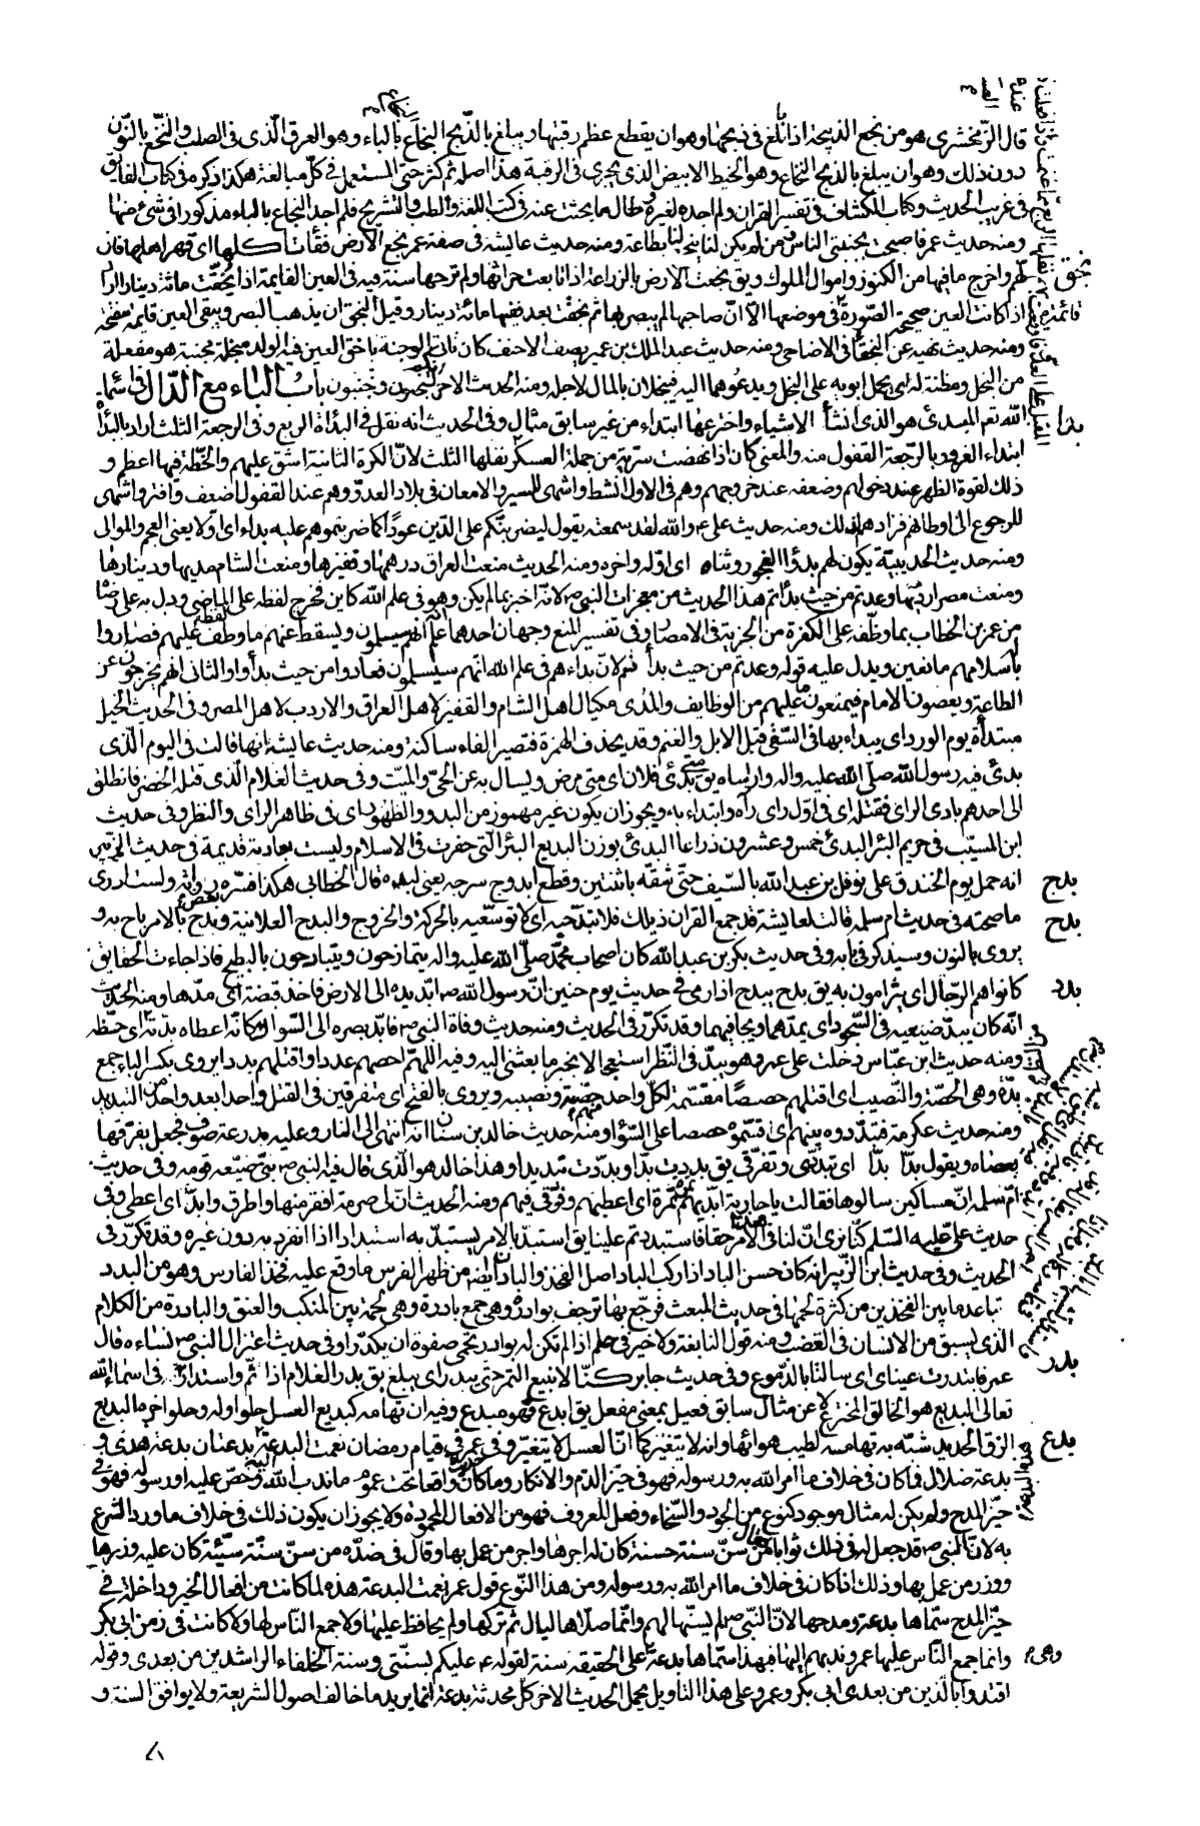 قال الزمخشرى هو من بخع الذبيحة اذا بالغ فى ذبحها وهو ان يقطع عظم رقبتها ويبلغ بالذبح البخاع بالباء وهو العرق الّذى فى الصلب والنّخع بالنّون
دون ذلك وهو ان يبلغ بالذبح النخاع وهو الخيط الابيض الذى يجرى فى الرقبة هذا اصله ثم كثر حتى استعمل فى كلّ مبالغة هكذا ذكره فى كتاب الفايق
فى غريب الحديث وكتاب الكشاف فى تفسير القران ولم اجده لغيره وطال ما بحثت عنه فى كتب اللغة والطب والتشريح فلم اجد البخاع بالباء مذكورا فى شئ منها
ومنه حديث عمر فاصبحت يجنبنى الناس ومن لم يكن يبخع لنا بطاعة ومنه حديث عايشة فى صفة عمر بخع الارض فقأت اكلها اى قهر اهلها
بخق
واخرج ما فيها من الكنوز واموال الملوك ويق بخعت الارض بالزراعة اذا تابعت حراثتها ولم ترحها سنة فيه فى العين القايمة اذا بخقت مائة دينار اراد
اذا كانت العين صحيحة الصّورة فى موضعها الّا انّ صاحبها لا يبصر بها ثم بخقت بعد ففيها مائة دينار وقيل البخق ان يذهب البصر ويبقى العين قايمة منفتحة
ومنه حديث نهيه عن البخقاء فى الاضاحى ومنه حديث عبد الملك بن عمير يصف الاحنف كان ناتئ الوجنة باخق العين فيه الولد مبخلة مجبنة هو مفعلة
من البخل ومظنة له اى يحمل ابويه على البخل ويدعوهما اليه فيبخلان بالمال لاجله ومنه الحديث الاخر انّكم لتبخّلون وتجبّنون باب الباء مع الدّال
بدا
الله تعم المبدئ هو الذى انشأ الاشياء واخترعها ابتداء من غير سابق مثال وفى الحديث انه نفل فى البدأة الربع وفى الرجعة الثلث اراد بالبدأة
ابتداء الغزو وبالرّجعة القفول منه والمعنى كان اذا نهضت سرية من جملة العسكر نفلها الثلث لانّ الكرة الثانية اشق عليهم والخطر فيها اعظم و
ذلك لقوة الظهر عند دخولهم وضعفه عند خروجهم وهم فى الاول انشط واشهى للسير والامعان فى بلاد العدوّ وهم عند القفول اضعف وافتر واشهى
للرجوع الى اوطانهم فزادهم لذلك ومنه حديث على ع والله لقد سمعته يقول ليضربنّكم على الدّين عودًا كما ضربتموهم عليه بدءا اى اوّلا يعنى العجم والموالى
ومنه حديث الحديبيّة يكون لهم بدؤ الفجور وثناه اى اوّله واخره ومنه الحديث منعت العراق درهمها وقفيزها ومنعت الشام مديها ودينارها
ومنعت مصر اردبّها وعدتم من حيث بدأتم هذا الحديث من معجزات النبى ص لانّه اخبر بما لم يكن وهو فى علم الله كاين فخرج لفظه على الماضى ودل به على رضاه
من عمر بن الخطاب بما وظّفه على الكفرة من الجزية فى الامصار وفى تفسير المنع وجهان احدهما علم انّهم سيسلمون ويسقط عنهم ما وظّف عليهم فصاروا
باسلامهم مانعين ويدل عليه قوله وعدتم من حيث بدأتم لانّ بداءهم فى علم الله انّهم سيسلمون فعادوا من حيث بدأوا والثانى انهم يخرجون عن
الطاعة ويعصون الامام فيمنعون ما عليهم من الوظايف والمدى مكيال اهل الشام والقفيز لاهل العراق والاردب لاهل المصر وفى الحديث الخيل
مبتدأة يوم الورد اى يبداء بها فى السّقى قبل الابل والغنم وقد يحذف الهمزة فتصير الفاء ساكنة ومنه حديث عايشة انها قالت فى اليوم الّذى
بدئ فيه رسول الله صلّى الله عليه واله واراساه يق متى بدئ فلان اى متى مرض ويسال به عن الحىّ والميّت وفى حديث الغلام الّذى قتله الخضر فانطلق
الى احدهم بادى الراى فقتله اى فى اوّل راى رآه وابتداء به ويجوز ان يكون غير مهموز من البدو والظهور اى فى ظاهر الراى والنظر وفى حديث
ابن المسيّب فى حريم البئر البدئ خمس وعشرون ذراعا البدئ بوزن البديع البئر الّتى حفرت فى الاسلام وليست بعادية قديمة فى حديث الزبير
بدج
انه حمل يوم الخندق على نوفل بن عبد الله بالسّيف حتّى شقّه باثنتين وقطع ابدوج سرجه يعنى لبده قال الخطابى هكذا فسّره بعض رواته ولست ادرى
بدح
ما صحته فى حديث ام سلمه قالت لعايشة قد جمع القران ذيلك فلا تبدحيه اى لا توسّعيه بالحركة والخروج والبدح العلانية وبدح بالامر باح به و
يروى بالنون وسيذكر فى بابه وفى حديث بكر بن عبد الله كان اصحاب محمّد صلّى الله عليه واله يتمازحون ويتبادحون بالبطيخ فاذا جاءت الحقايق
كانوا هم الرّجال اى يترامون به يق بدح يبدح اذا رمى
بدد
فى حديث يوم حنين انّ رسول الله ص ابدّ يده الى الارض فاخذ قبضة اى مدّها ومنه الحديث
انّه كان يبدّ ضبعيه فى السّجود اى يمدّهما ويجافيهما وقد تكرّر فى الحديث ومنه حديث وفاة النبى ص فابدّ بصره الى السّواك وكانّه اعطاه بدّته اى حظّه
ومنه حديث ابن عبّاس دخلت على عمر وهو يبدّنى النّظر استعجالا بخبر ما بعثنى اليه وفيه اللهمّ احصهم عددا واقتلهم بددا يروى بكسر الباء جمع
بدّة وهى الحصّة والنّصيب اى اقتلهم حصصًا مقسّمة لكلّ واحد حصّته ونصيبه ويروى بالفتح اى متفرقين فى القتل واحدا بعد واحد من التبديد
ومنه حديث عكرمة فتبدّدوه بينهم اى قسّموه حصصا على السّواء ومنه حديث خالد بن سنان انه انتهى الى النار وعليه مدرعة صوف فجعل يفرّقها
بعصاه ويقول بدّا بدّا اى تبدّدى وتفرّقى يق بددت بدّا وبدّدت تبديدا وهذا خالد هو الّذى قال فيه النبى ص نبىّ ضيّعه قومه وفى حديث
امّ سلمه انّ مساكين سالوها فقالت يا جارية ابدّيهم تمرة تمرة اى اعطيهم وفرّقى فيهم ومنه الحديث انّ لى صرمة افقر منها واطرق وابدّ اى اعطى وفى
حديث علىّ عليه السّلم كنّا نرى انّ لنا فى هذا الامر حقا فاستبددتم علينا يق استبدّ بالامر يستبدّ به استبدادا اذا انفرد به دون غيره وقد تكرّر فى
الحديث وفى حديث ابن الزّبير انه كان حسن الباد اذا ركب الباد اصل الفخذ والبادّان ايضا من ظهر الفرس ما وقع عليه فخذ الفارس وهو من البدد
تباعد ما بين الفخذين من كثرة لحمها
بدر
فى حديث المبعث فرجع بها ترجف بوادره وهى جمع بادرة وهى لحمة بين المنكب والعنق والبادرة من الكلام
الذى يسبق من الانسان فى الغضب ومنه قول النابغة ولا خير فى حلم اذا لم تكن له بوادر تحمى صفوه ان يكدّرا وفى حديث اعتزال النبى ص نساءه قال
عمر فابتدرت عيناى اى سالتا بالدّموع وفى حديث جابر كنّا لا نبيع التمر حتّى يبدر اى يبلغ يق بدر الغلام اذا تمّ واستدار فى اسماء الله
بدع
تعالى البديع هو الخالق المخترع لا عن مثال سابق فعيل بمعنى مفعل يق ابدع فهو مبدع وفيه ان تهامه كبديع العسل حلو اوله وحلو اخره البديع
الزق الجديد شبّه به تهامه لطيب هوائها وانه لا يتغيّر كما انّ العسل لا يتغيّر وفى عمر فى قيام رمضان نعمت البدعة البدعة بدعتان بدعة هدى و
بدعة ضلال فما كان فى خلاف ما امر الله به ورسوله فهو فى حيّز الذم والانكار وما كان واقعا تحت عموم ما ندب الله اليه وحضّ عليه او رسوله فهو فى
حيّز المدح ولم يكن له مثال موجود كنوع من الجود والسّخاء وفعل المعروف فهو من الافعال المحمودة ولا يجوز ان يكون ذلك فى خلاف ما ورد الشرع
به لانّ النبى ص قد جعل له فى ذلك ثوابا فقال من سنّ سنة حسنة كان له اجرها واجر من عمل بها وقال فى ضدّه من سنّ سنّة سيّئة كان عليه وزرها
ووزر من عمل بها وذلك اذا كان فى خلاف ما امر الله به ورسوله ومن هذا النّوع قول عمر نعمت البدعة هذه لما كانت من افعال الخير وداخلة فى
حيّز المدح سمّاها بدعة ومدحها لانّ النّبى ص لم يسنّها لهم وانّما صلّاها ليال ثم تركها ولم يحافظ عليها ولا جمع النّاس لها ولا كانت فى زمن ابى بكر
وانما جمع النّاس عليها عمر وندبهم اليها فبهذا سمّاها بدعة وهى على الحقيقة سنة لقوله ع عليكم بسنّتى وسنة الخلفاء الراشدين من بعدى وقوله
اقتدوا بالّذين من بعدى ابى بكر وعمر وعلى هذا التاويل يحمل الحديث الاخر كل محدثة بدعة انّما يريد ما خالف اصول الشريعة ولا يوافق السنة و